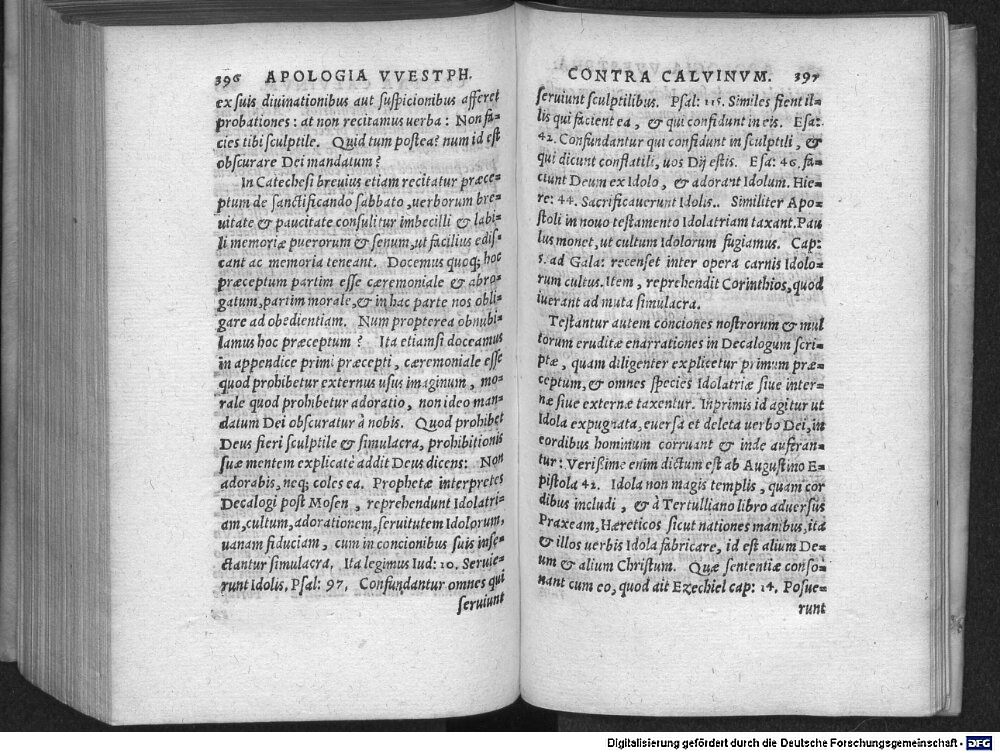 396 APOLOGIA VVESTPH.
ex suis diuinationibus aut suspicionibus afferet
probationes: at non recitamus uerba: Non fa-
cies tibi sculptile. Quid tum postea? num id est
obscurare Dei mandatum?
In Catechesi breuius etiam recitatur præce-
ptum de sanctificando sabbato, uerborum bre-
uitate & paucitate consulitur imbecilli & labi-
li memoriæ puerorum & senum, ut facilius edis-
cant ac memoria teneant. Docemus quoq; hoc
præceptum partim esse cæremoniale & abro-
gatum, partim morale, & in hac parte nos obli-
gare ad obedientiam. Num propterea obnubi-
lamus hoc præceptum? Ita etiamsi doceamus
in appendice primi præcepti, cæremoniale esse
quod prohibetur externus usus imaginum, mo-
rale quod prohibetur adoratio, non ideo man-
datum Dei obscuratur à nobis. Quod prohibet
Deus fieri sculptile & simulacra, prohibitionis
suæ mentem explicatè addit Deus dicens: Non
adorabis, neq; coles ea. Prophetæ interpretes
Decalogi post Mosen, reprehendunt Idolatri-
am, cultum, adorationem, seruitutem Idolorum,
uanam fiduciam, cum in concionibus suis inse-
ctantur simulacra. Ita legimus Iud: 10. Seruie-
runt Idolis. Psal: 97. Confundantur omnes qui
seruiunt
CONTRA CALVINVM. 397
seruiunt sculptilibus. Psal: 115. Similes fient il-
lis qui faciunt ea, & qui confidunt in eis. Esa:
42. Confundantur qui confidunt in sculptili, &
qui dicunt conflatili, uos Dij estis. Esa: 46. fa-
ciunt Deum ex Idolo, & adorant Idolum. Hie-
re: 44. Sacrificauerunt Idolis.. Similiter Apo-
stoli in nouo testamento Idolatriam taxant. Pau
lus monet, ut cultum Idolorum fugiamus. Cap:
5. ad Gala: recenset inter opera carnis Idolo-
rum cultus. Item, reprehendit Corinthios, quod
iuerant ad muta simulacra.
Testantur autem conciones nostrorum & mul
torum eruditæ enarrationes in Decalogum scri-
ptæ, quam diligenter explicetur primum præ-
ceptum, & omnes species Idolatriæ siue inter-
næ siue externæ taxentur. Inprimis id agitur ut
Idola expugnata, euersa et deleta uerbo Dei, in
cordibus hominum corruant & inde auferan-
tur: Verißime enim dictum est ab Augustino E-
pistola 42. Idola non magis templis, quam cor
dibus includi, & à Tertulliano libro aduersus
Praxeam, Hæreticos sicut nationes manibus, ita
& illos uerbis Idola fabricare, id est alium De-
um & alium Christum. Quæ sententiæ conso-
nant cum eo, quod ait Ezechiel cap: 14. Posue-
runt
Digitalisierung gefördert durch die Deutsche Forschungsgemeinschaft - DFG